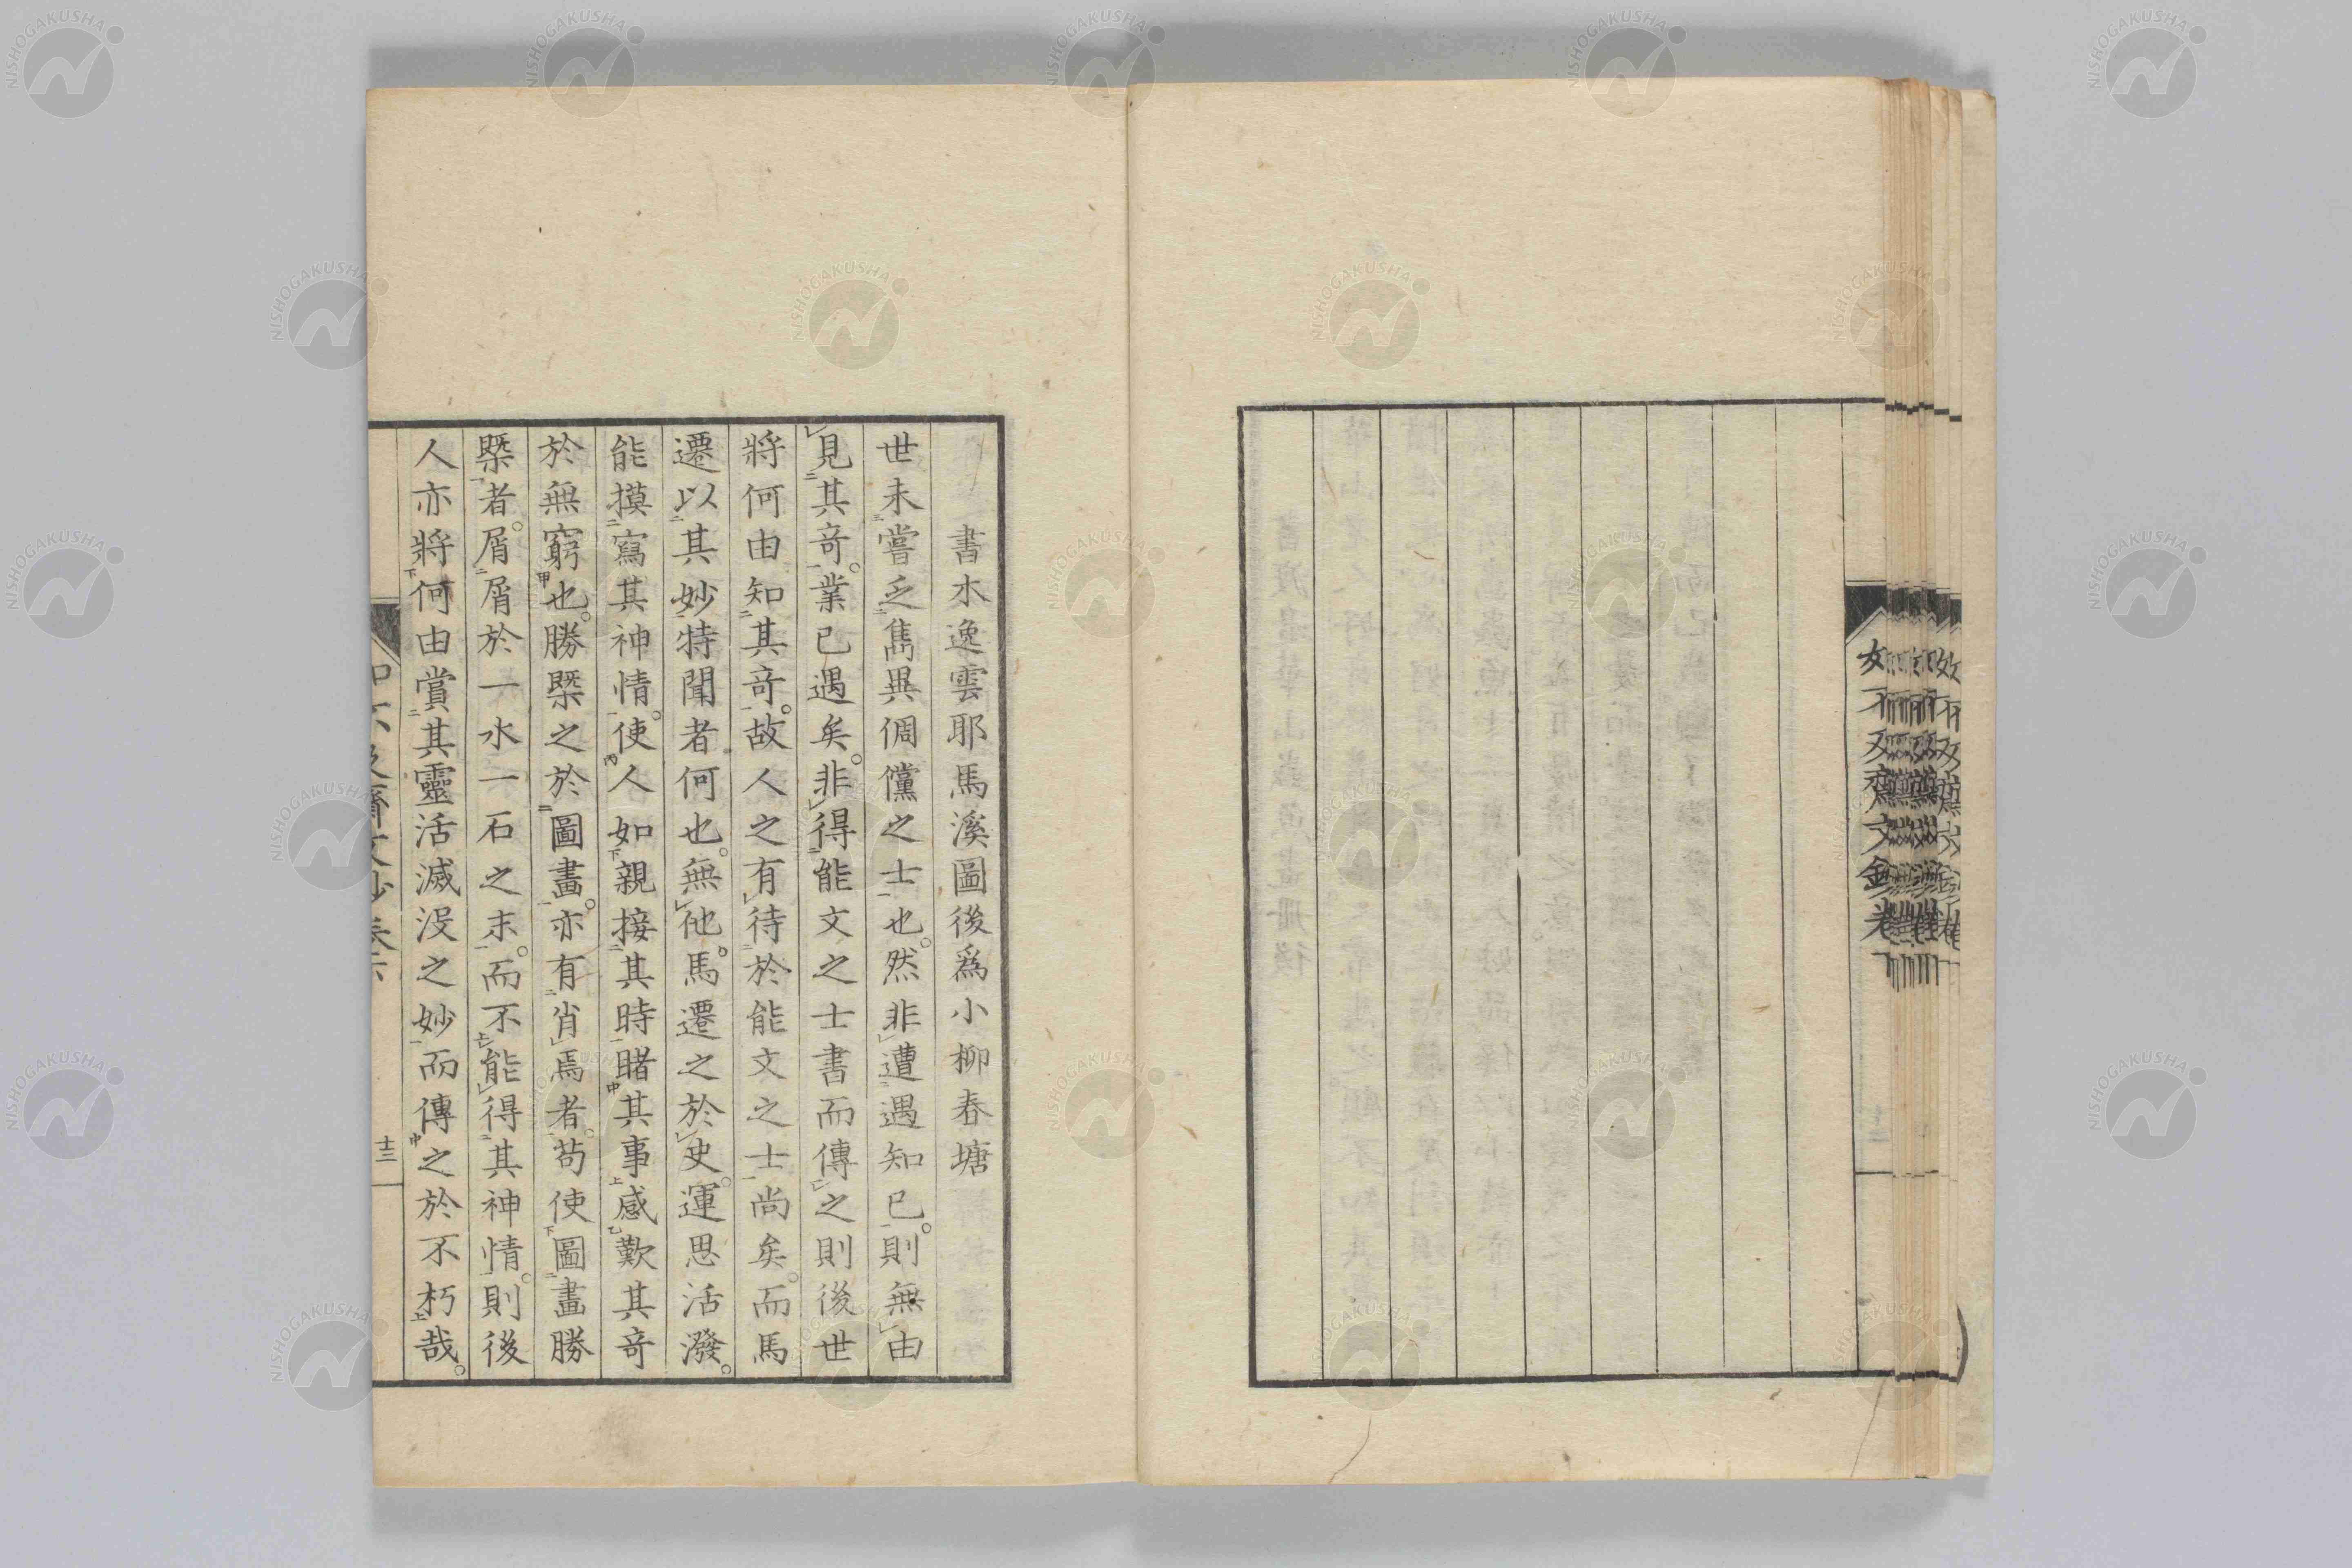 書木逸雲耶馬溪圖後爲小柳春塘
世未嘗乏雋異倜儻之士也。然非遭遇知已。則無由
見其奇。業已遇矣。非得能文之士書而傳之則後世
將何由知其奇。故人之有待於能文之士尚矣。而馬
遷以其妙特聞者何也。無他。馬遷之於史。運思活潑。
能摸寫其神情。使人如親接其時睹其事感歎其奇
於無窮也。勝槩之於圖畫。亦有肖焉者。苟使圖畫勝
槩者。屑屑於一水一石之末。而不能得其神情。則後
人亦將何由賞其靈活滅没之妙而傳之於不朽哉。
十三